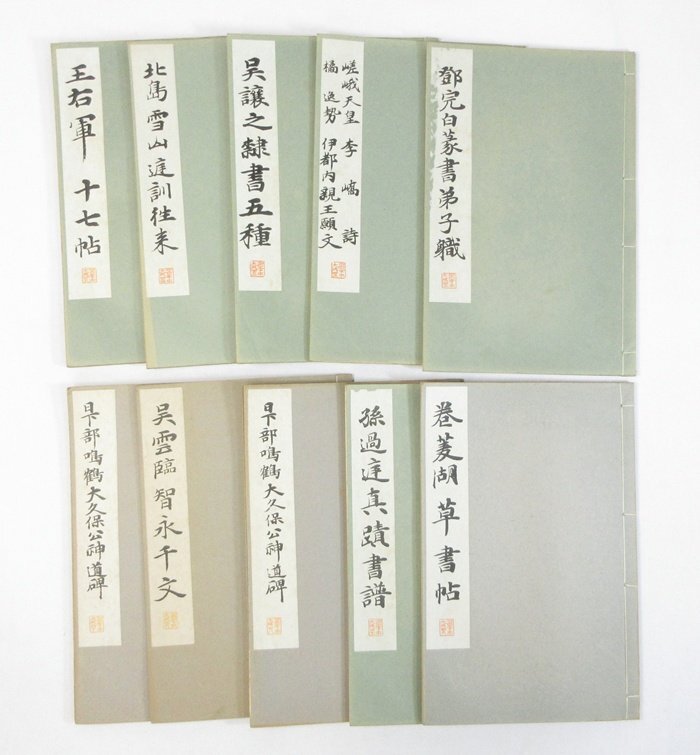 王右軍 十七帖
北島雪山庭訓往来
吳讓之隸書五種
嵯峨天皇 李嶠詩
橘逸勢 伊都内親王願文
鄧完白篆書弟子職
日下部鳴鶴大久保公神道碑
吴雲臨智永千文
日下部鳴鶴大久保公神道碑
孫過庭真蹟書譜
卷菱湖草書帖